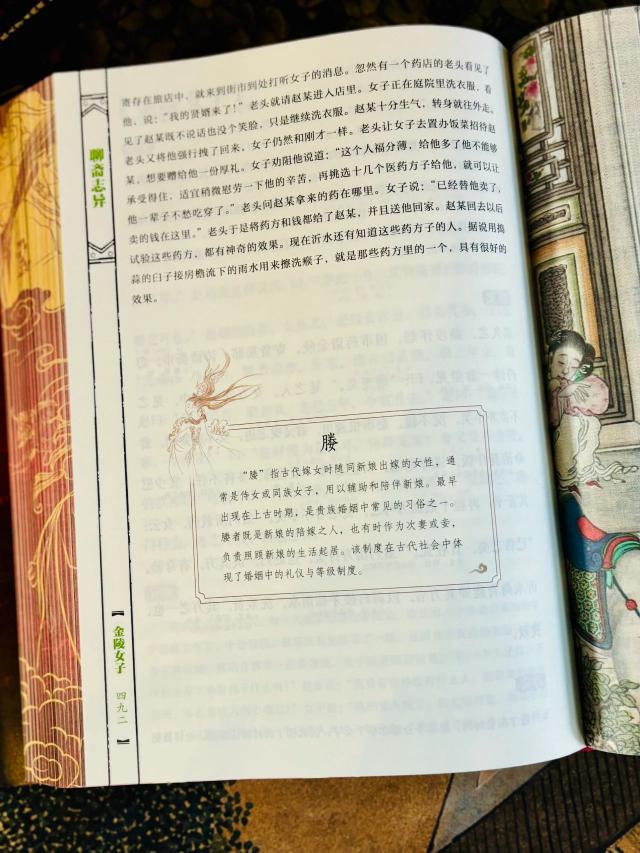 寄存在旅店中，就来到街市到处打听女子的消息。忽然有一个药店的老头看见了
他，说：“我的贤婿来了！”老头就请赵某进入店里。女子正在庭院里洗衣服，看
见了赵某既不说话也没个笑脸，只是继续洗衣服。赵某十分生气，转身就往外走。
老头又将他强行拽了回来，女子仍然和刚才一样。老头让女子去置办饭菜招待赵
某，想要赠给他一份厚礼。女子劝阻他说道：“这个人福分薄，给他多了他不能够
承受得住，适宜稍微慰劳一下他的辛苦，再挑选十几个医药方子给他，就可以让
他一辈子不愁吃穿了。”老头问赵某拿来的药在哪里。女子说：“已经替他卖了，
卖的钱在这里。”老头于是将药方和钱都给了赵某，并且送他回家。赵某回去以后
试验这些药方，都有神奇的效果。现在沂水还有知道这些方子的人。据说用捣
蒜的臼子接房檐流下的雨水用来擦洗瘊子，就是那些药方里的一个，具有很好的
效果。
媵
“媵”指古代嫁女时随同新娘出嫁的女性，通
常是侍女或同族女子，用以辅助和陪伴新娘。最早
出现在上古时期，是贵族婚姻中常见的习俗之一。
媵者既是新娘的陪嫁之人，也有时作为次妻或妾，
负责照顾新娘的生活起居。该制度在古代社会中体
现了婚姻中的礼仪与等级制度。
聊斋志异
【金陵女子 四九二】